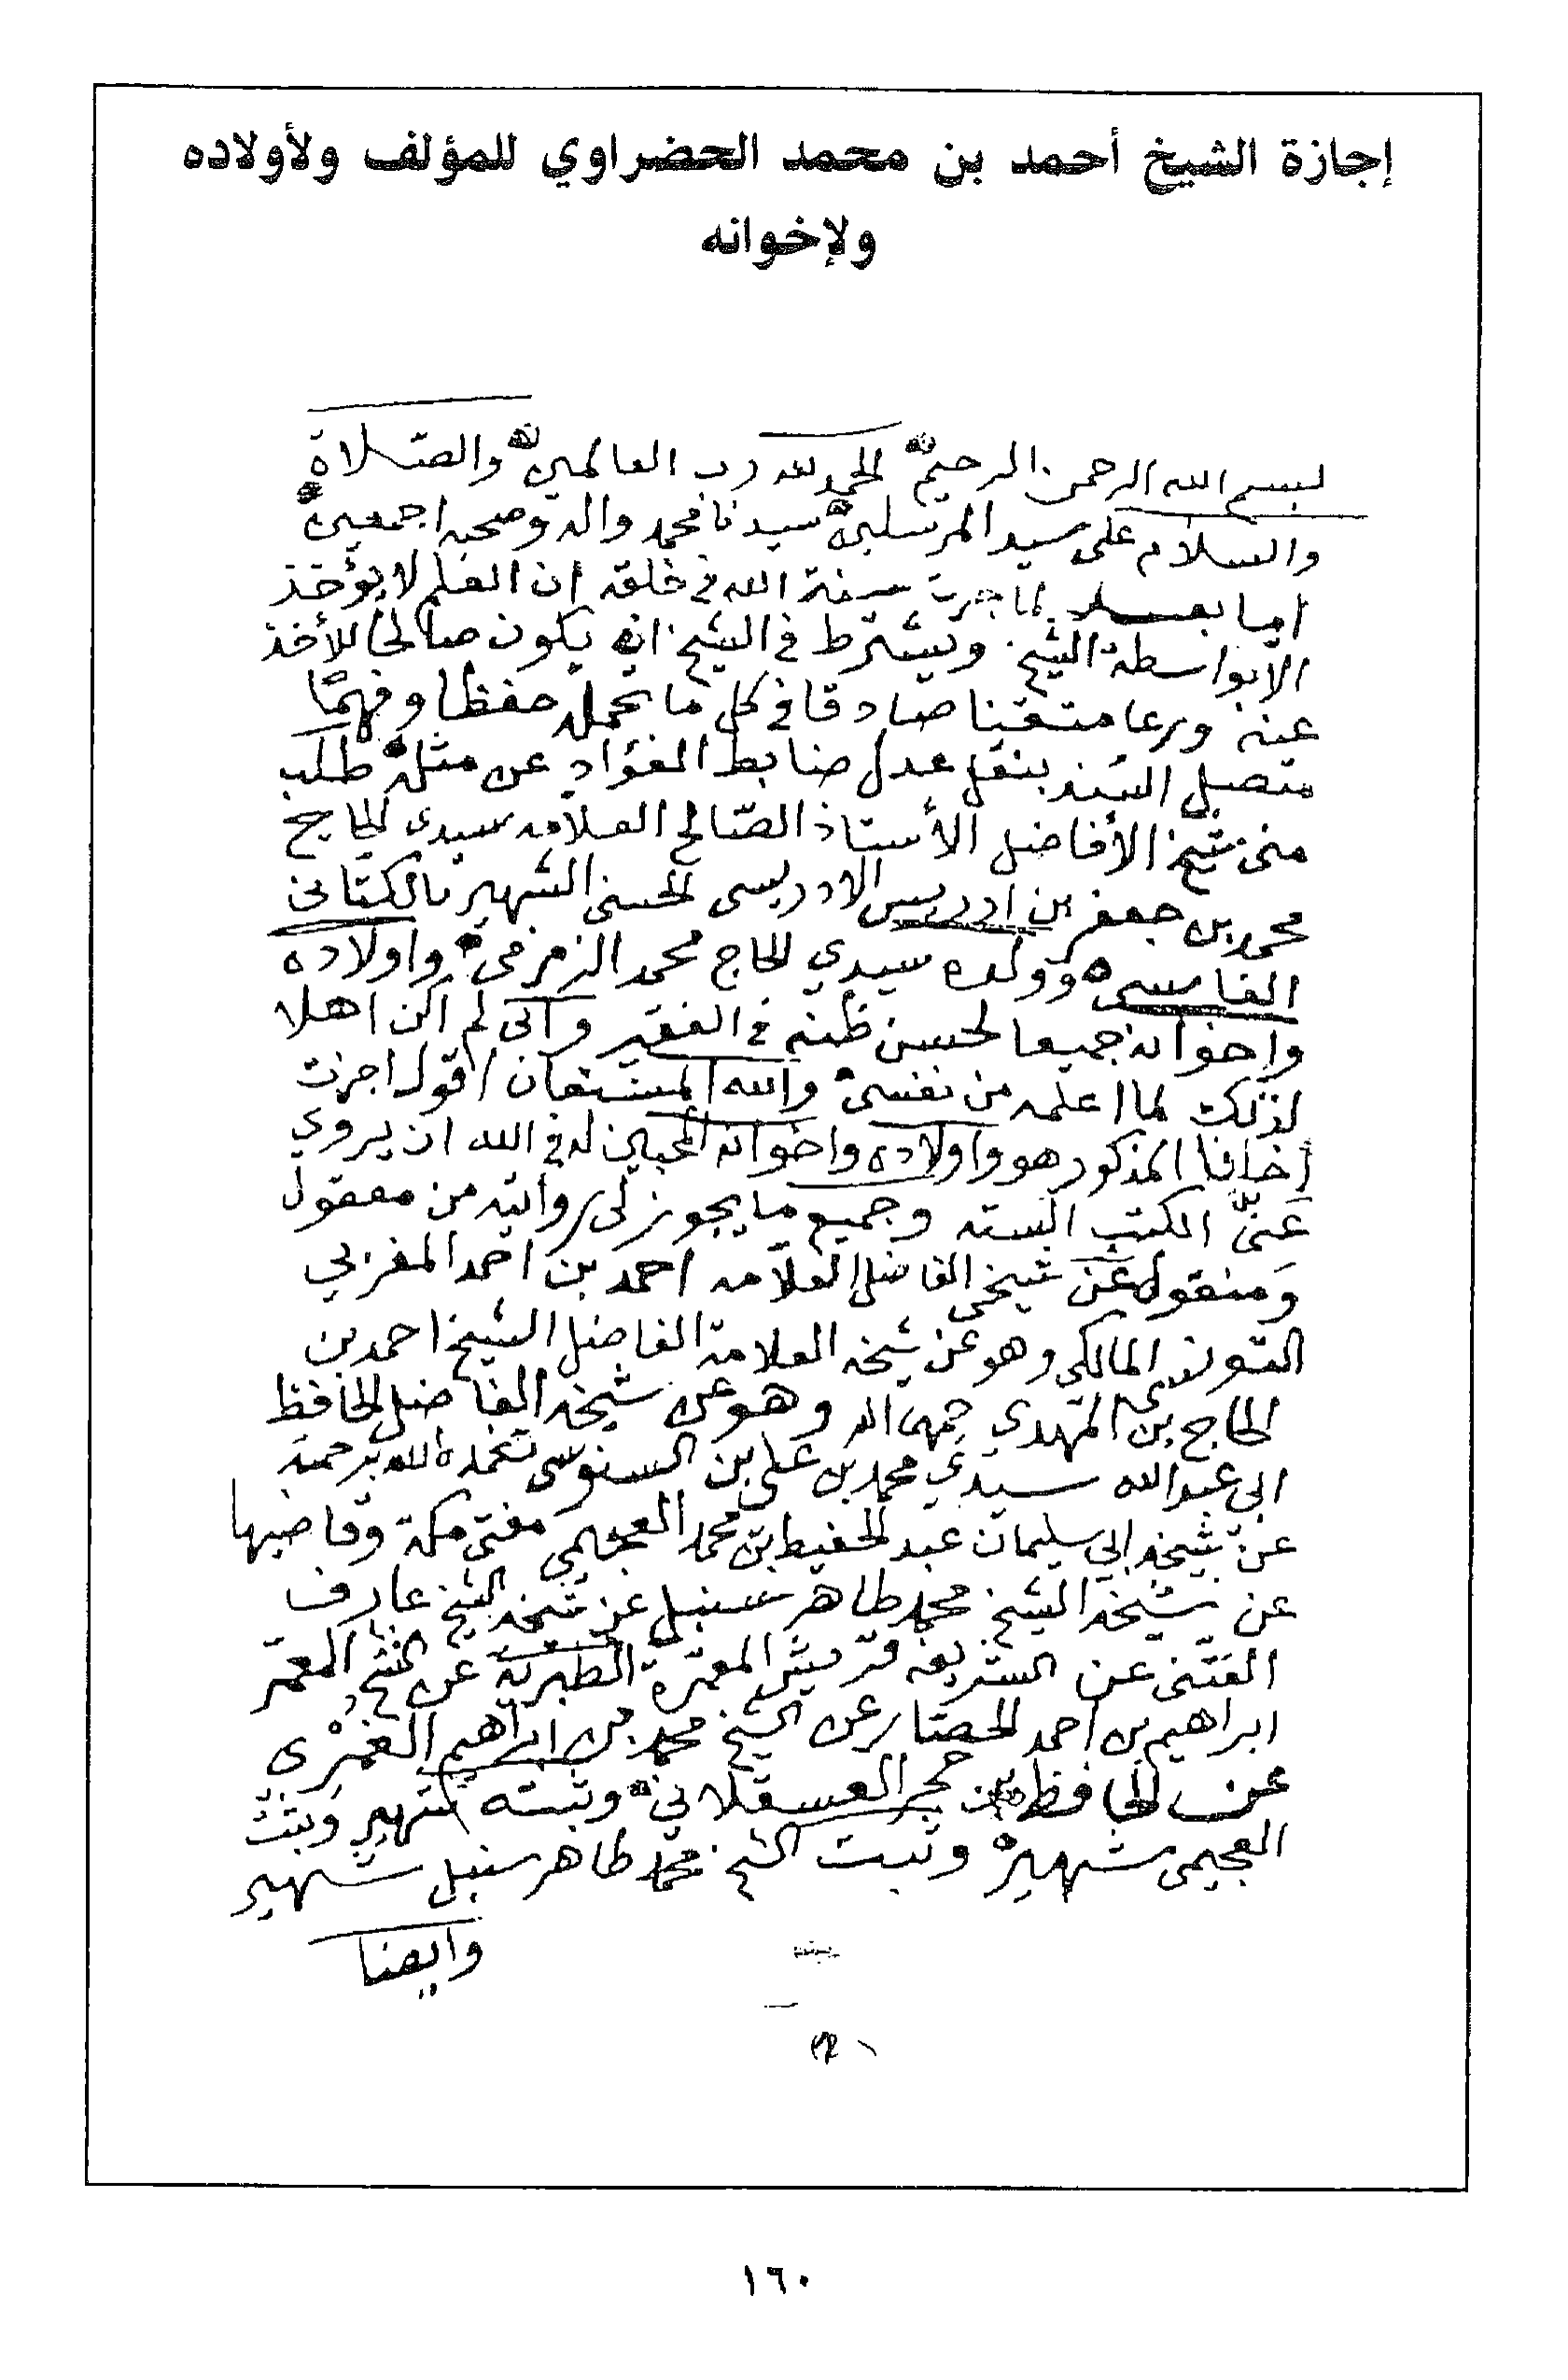 إجازة الشيخ أحمد بن محمد الحضراوي للمؤلف ولأولاده
ولإخوانه
بسم الله الرحمن الرحيم الحمد لله رب العالمين والصّلاة
والسلام على سيد المرسلين سيدنا محمد واله وصحبه اجمعين
اما بعد لما جرت سنة الله في خلقه ان العلم لا يؤخذ
الا بواسطة الشيخ ويشترط في الشيخ ان يكون صالحا للأخذ
عنه ورعا متقنا صادقا في كل ما تحمله حفظا وفهمًا
متصل السند بنقل عدل ضابط الفؤاد عن مثله طلب
منى شيخ الأفاضل الأستاذ الصّالح العلامه سيدى الحاج
محمد بن جعفر بن ادريس الادريسى الحسنى الشهير بالكتانى
الفاسى وولده سيدي الحاج محمد الزمزمى واولاده
واخوانه جميعا لحسن ظنه في الفقير وانى لم اكن اهلا
لذلك لما اعلمه من نفسى والله المستعان اقول اجزت
أخانا المذكور هو واولاده واخوانه المحبين له في الله ان يروي
عنى الكتب السته وجميع ما يجوز لى روايته من معقول
ومنقول عن شيخى الفاضل العلامه احمد بن احمد المغربي
التونسى المالكى وهو عن شيخه العلامة الفاضل الشيخ احمد بن
الحاج بن المهدي وهو عن شيخه الفاضل الحافظ
ابى عبد الله سيدي محمد بن على بن السنوسى تغمده الله برحمته
عن شيخه ابي سليمان عبد الحفيظ بن محمد العجيمي مفتى مكة وقاضيها
عن شيخه الشيخ محمد طاهر سنبل عن شيخه الشيخ عارف
الفتنى عن الشريفه قريش المعمرة الطبرية عن الشيخ المعمّر
ابراهيم بن احمد الحصارى عن الشيخ محمد بن ابراهيم الغمرى
عن الحافظ بن حجر العسقلاني وثبته شهير وثبت
العجيمى شهير وثبت الشيخ محمد طاهر سنبل شهير
وايضنا
١٦٠